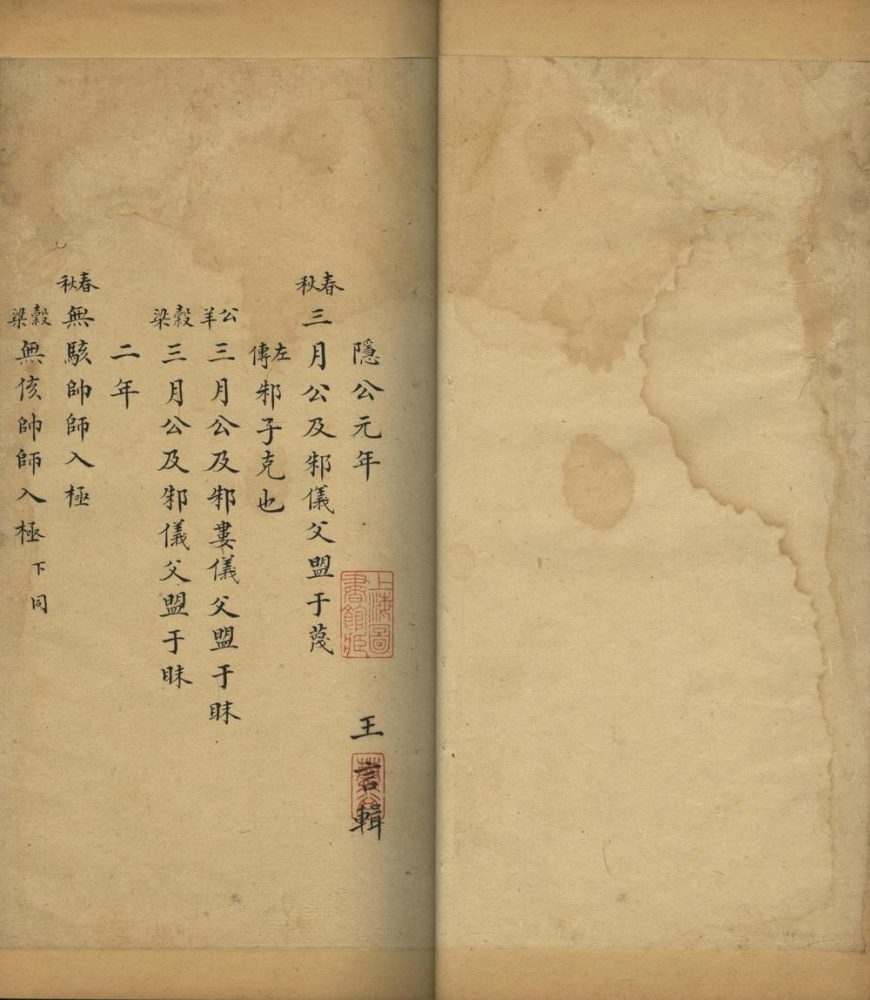 隱公元年 王言輯
上海圖書館藏
春秋三月公及邾儀父盟于蔑
左傳邾子克也
公羊三月公及邾婁儀父盟于眜
穀梁三月公及邾儀父盟于眜
二年
春秋無駭帥師入極
穀梁無侅帥師入極下同